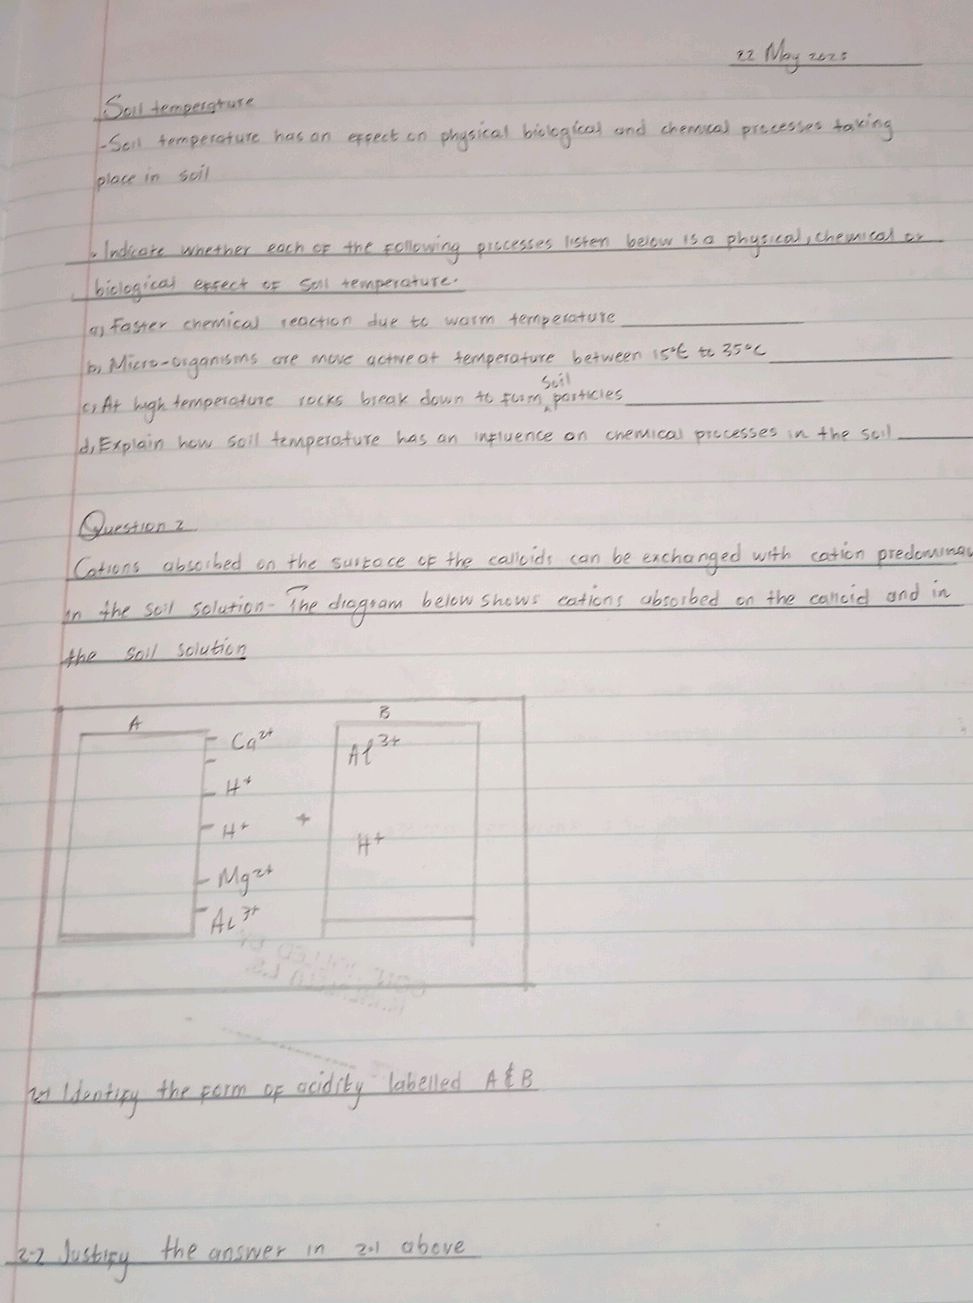 22 May 2025
Soil temperature
-Soil temperature has an effect on physical biological and chemical processes taking
place in soil
1. Indicate whether each of the following processes listen below is a physical, chemical or
biological effect of soil temperature.
a) Faster chemical reaction due to warm temperature
b) Micro-organisms are move active at temperature between 15°C to 35°C
soil
c) At high temperature rocks break down to form particles
d) Explain how soil temperature has an influence on chemical processes in the soil
Question 2
Cations absorbed on the surface of the calloids can be exchanged with cation predominan
in the soil solution- The diagram below shows cations absorbed on the calloid and in
the soil solution
A B
Ca2+ Al3+
H+
H+ + H+
Mg2+
AL3+
2.1 Identify the form of acidity labelled A & B
2.2 Justify the answer in 2.1 above